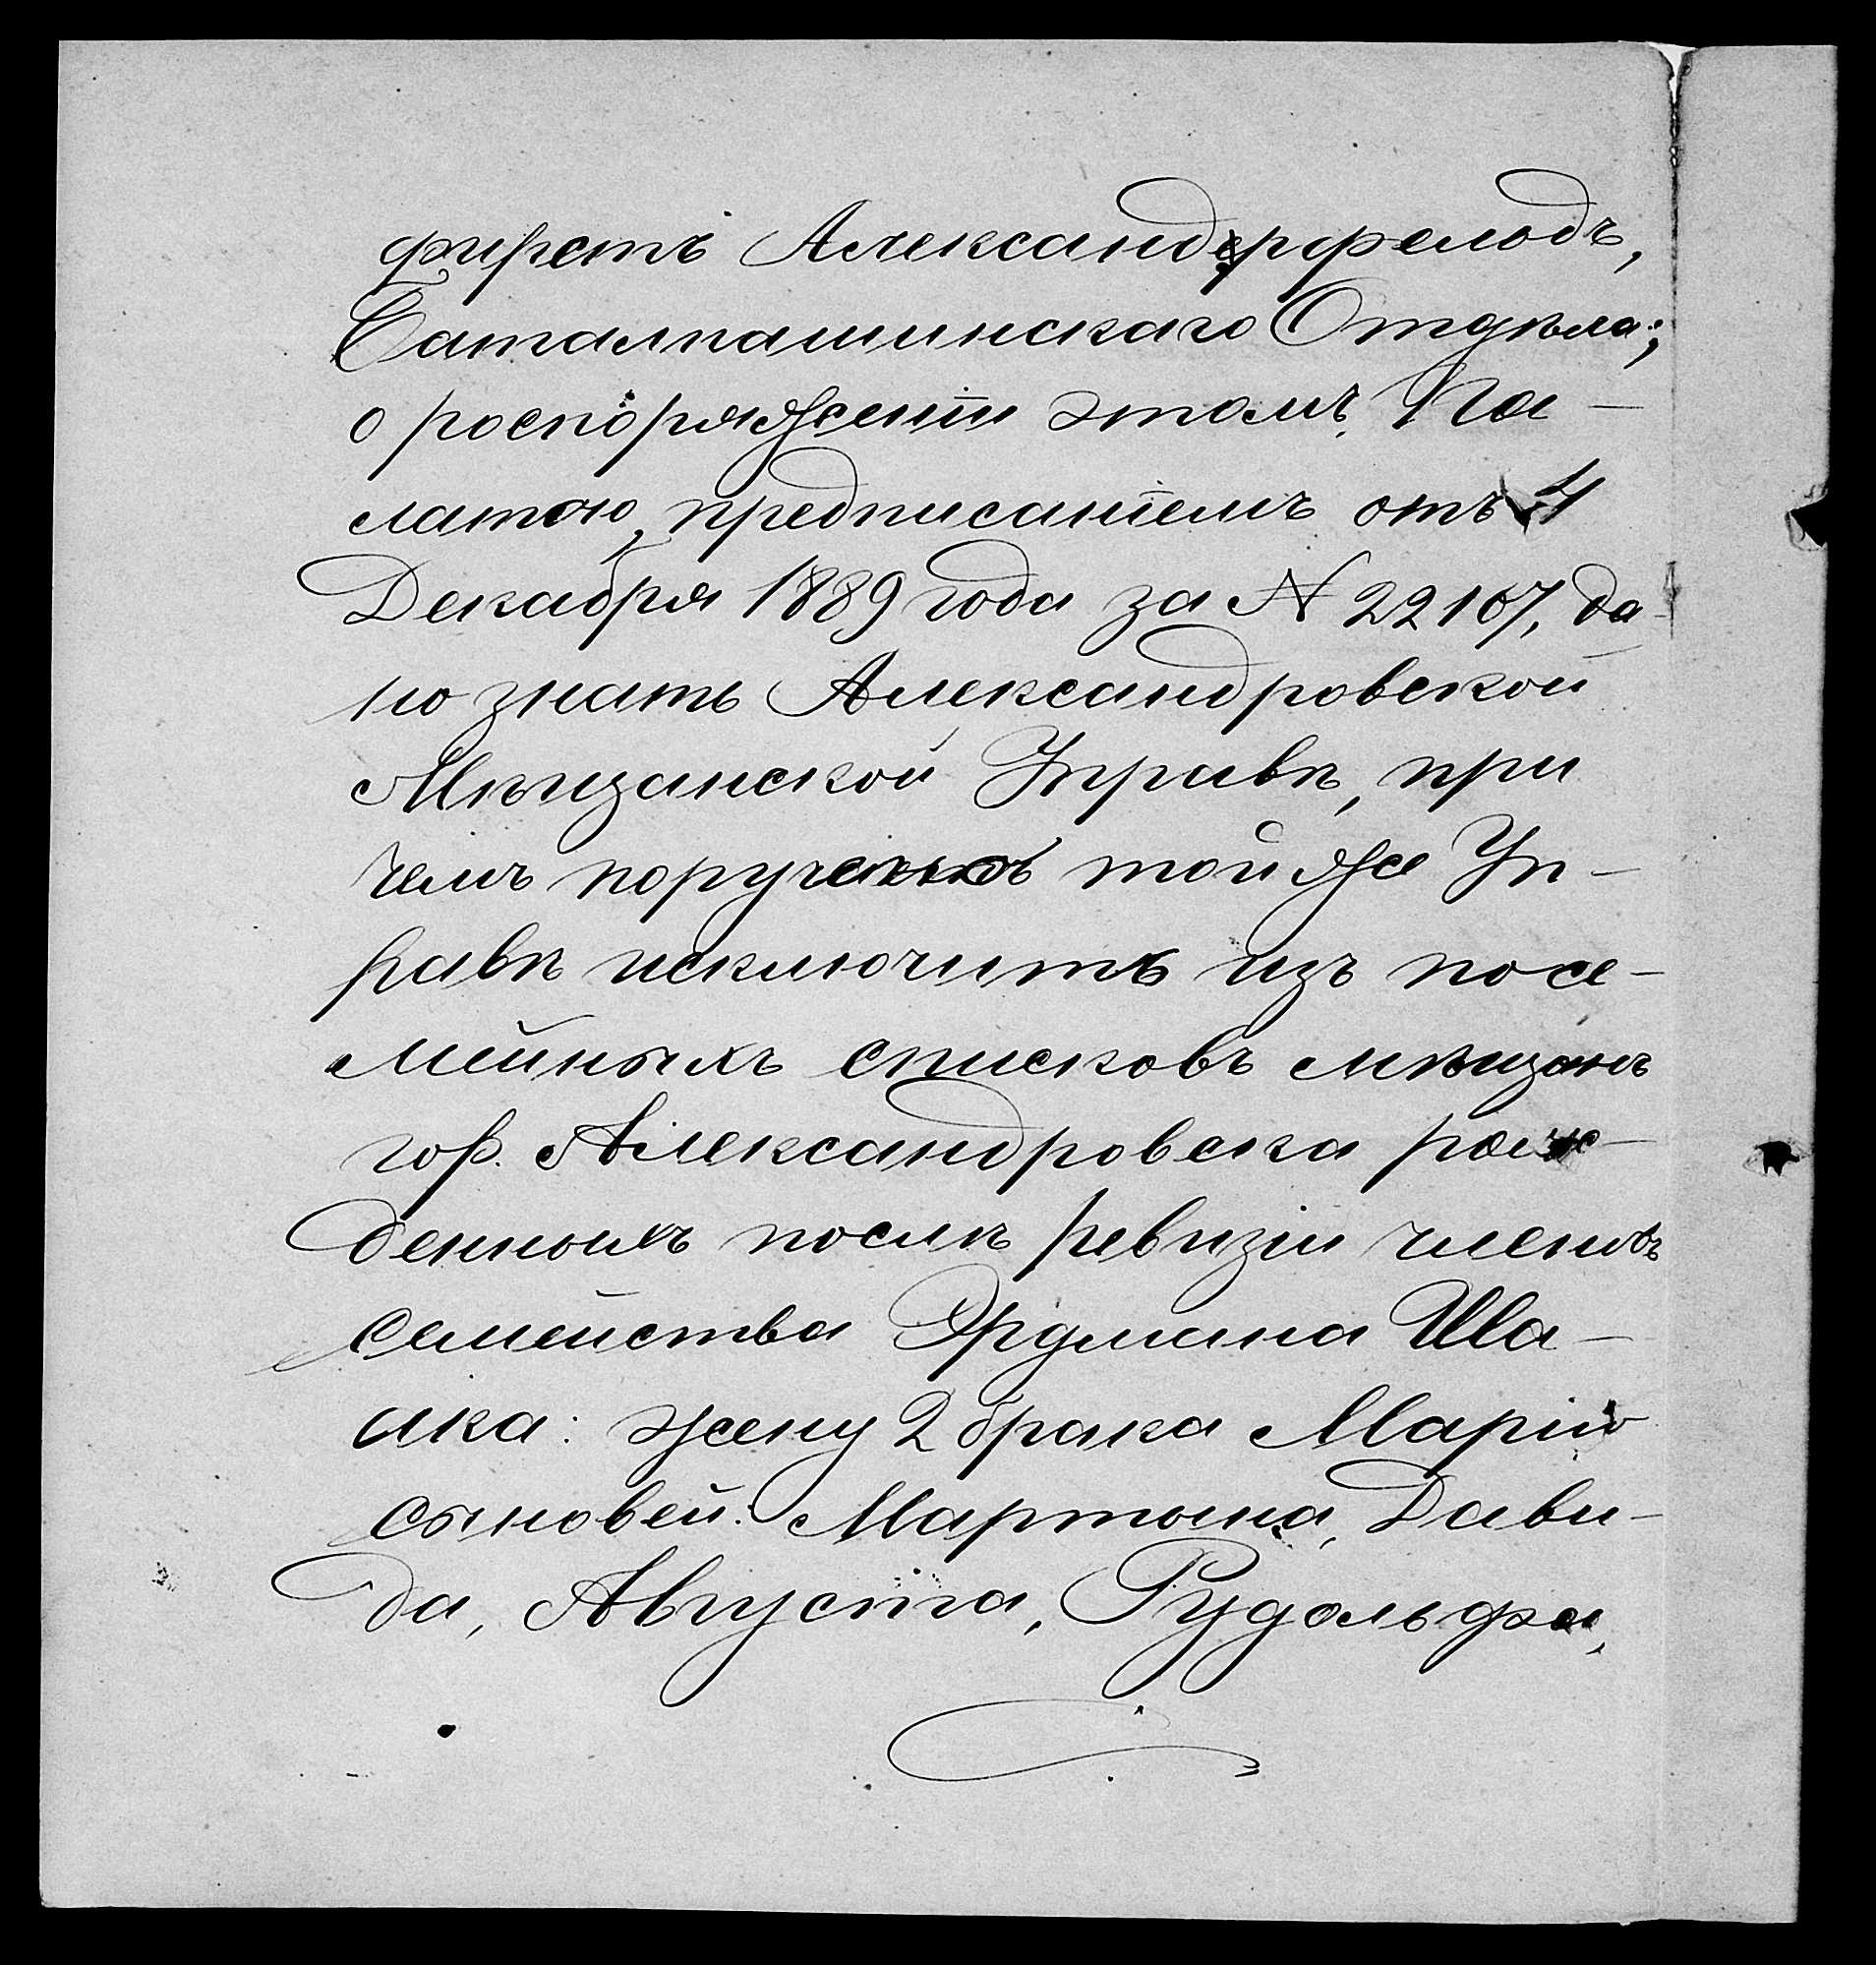 фирстъ Александерфельдъ,
Баталпашинскаго Отдѣла;
о роспоряженіи этомъ Па-
латою, предписаніемъ отъ 4
Декабря 1889 года за N 22107, да-
но знать Александровской
Мѣщанской Управѣ, при
чемъ поручено той же Уп-
равѣ исключить изъ посе-
мейныхъ списковъ мѣщанъ
гор. Александровска рож-
денныхъ послѣ ревизіи членовъ
семейства Эрдмана Ша-
лка: жену 2 брака Марію
сыновей: Мартына, Дави-
да, Августа, Рудольфа,